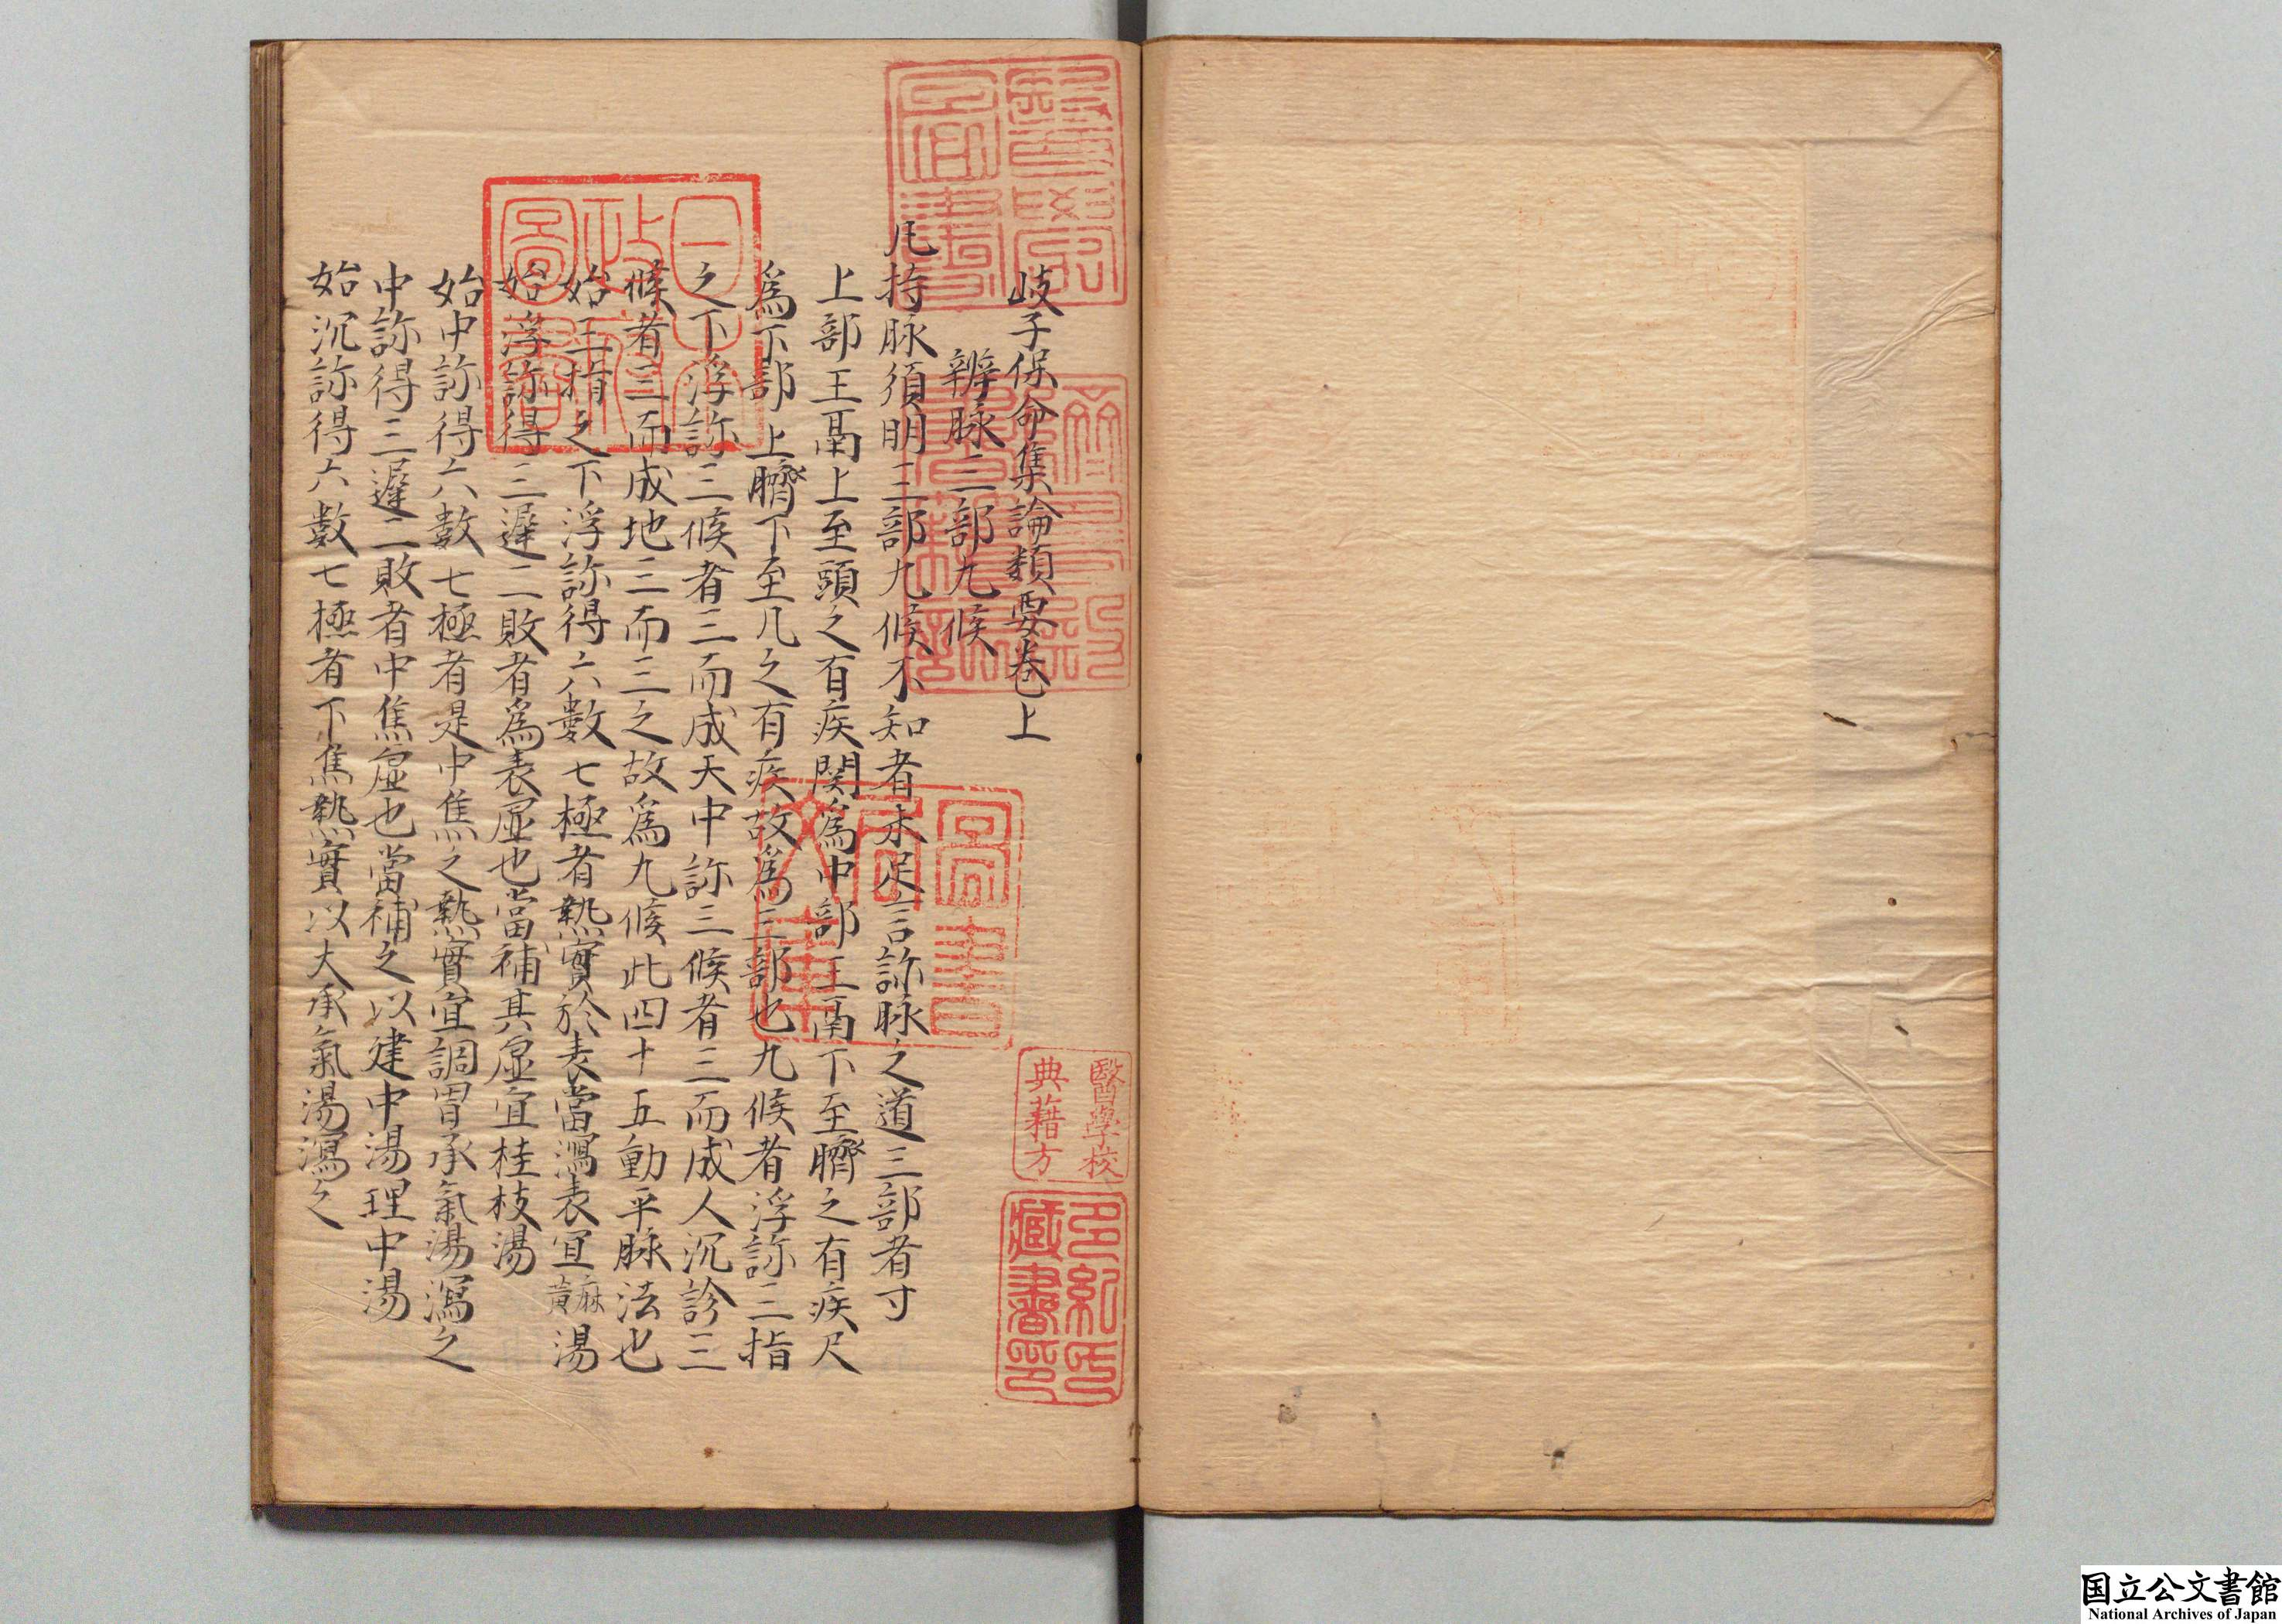 岐子保命集論類要卷上
辨脉三部九候
凡持脉須明三部九候不知者未足言診脉之道三部者寸
上部王鬲上至頭之有疾関為中部王鬲下至臍之有疾尺
為下部上臍下至几之有疾故為三部也九候者浮診三指
之下浮診三候者三而成天中診三候者三而成人沉診三
候者三而成地三而三之故為九候此四十五動平脉法也
始三指之下浮診得六數七極者熱實於表當瀉表宜麻黃湯
始浮診得三遲二敗者為表虛也當補其虛宜桂枝湯
始中診得六數七極者是中焦之熱實宜調胃承氣湯瀉之
中診得三遲二敗者中焦虛也當補之以建中湯理中湯
始沉診得六數七極者下焦熱實以大承氣湯瀉之
醫學圖書
日本政府圖書
醫學校
典籍方
多紀氏
藏書印
国立公文書館
National Archives of Japan